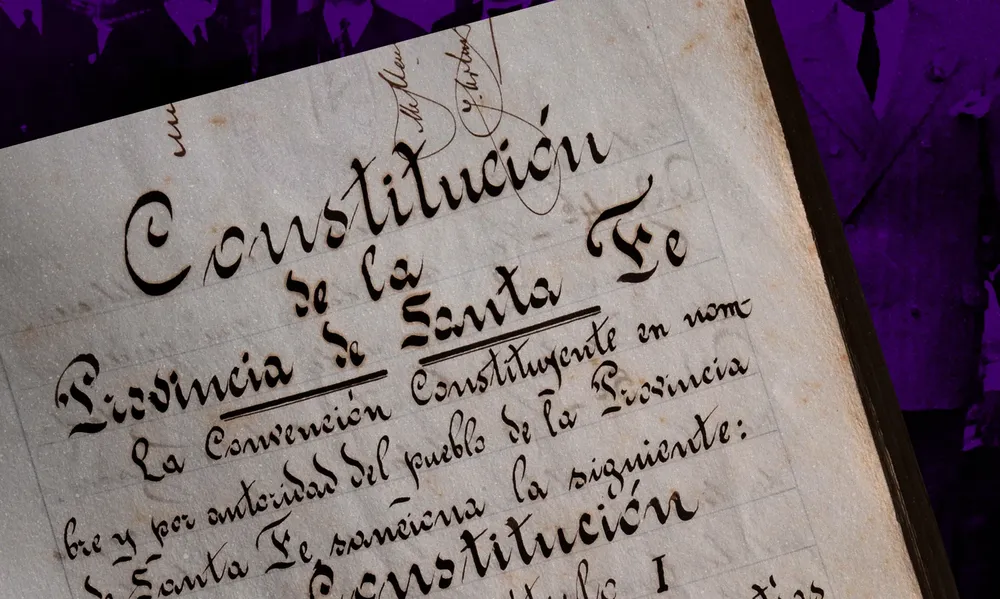 Constitución
de la
Provincia de Santa Fe
La Convención Constituyente en nom-
bre y por autoridad del pueblo de la Provincia
de Santa Fe sanciona la siguiente:
Constitución
I